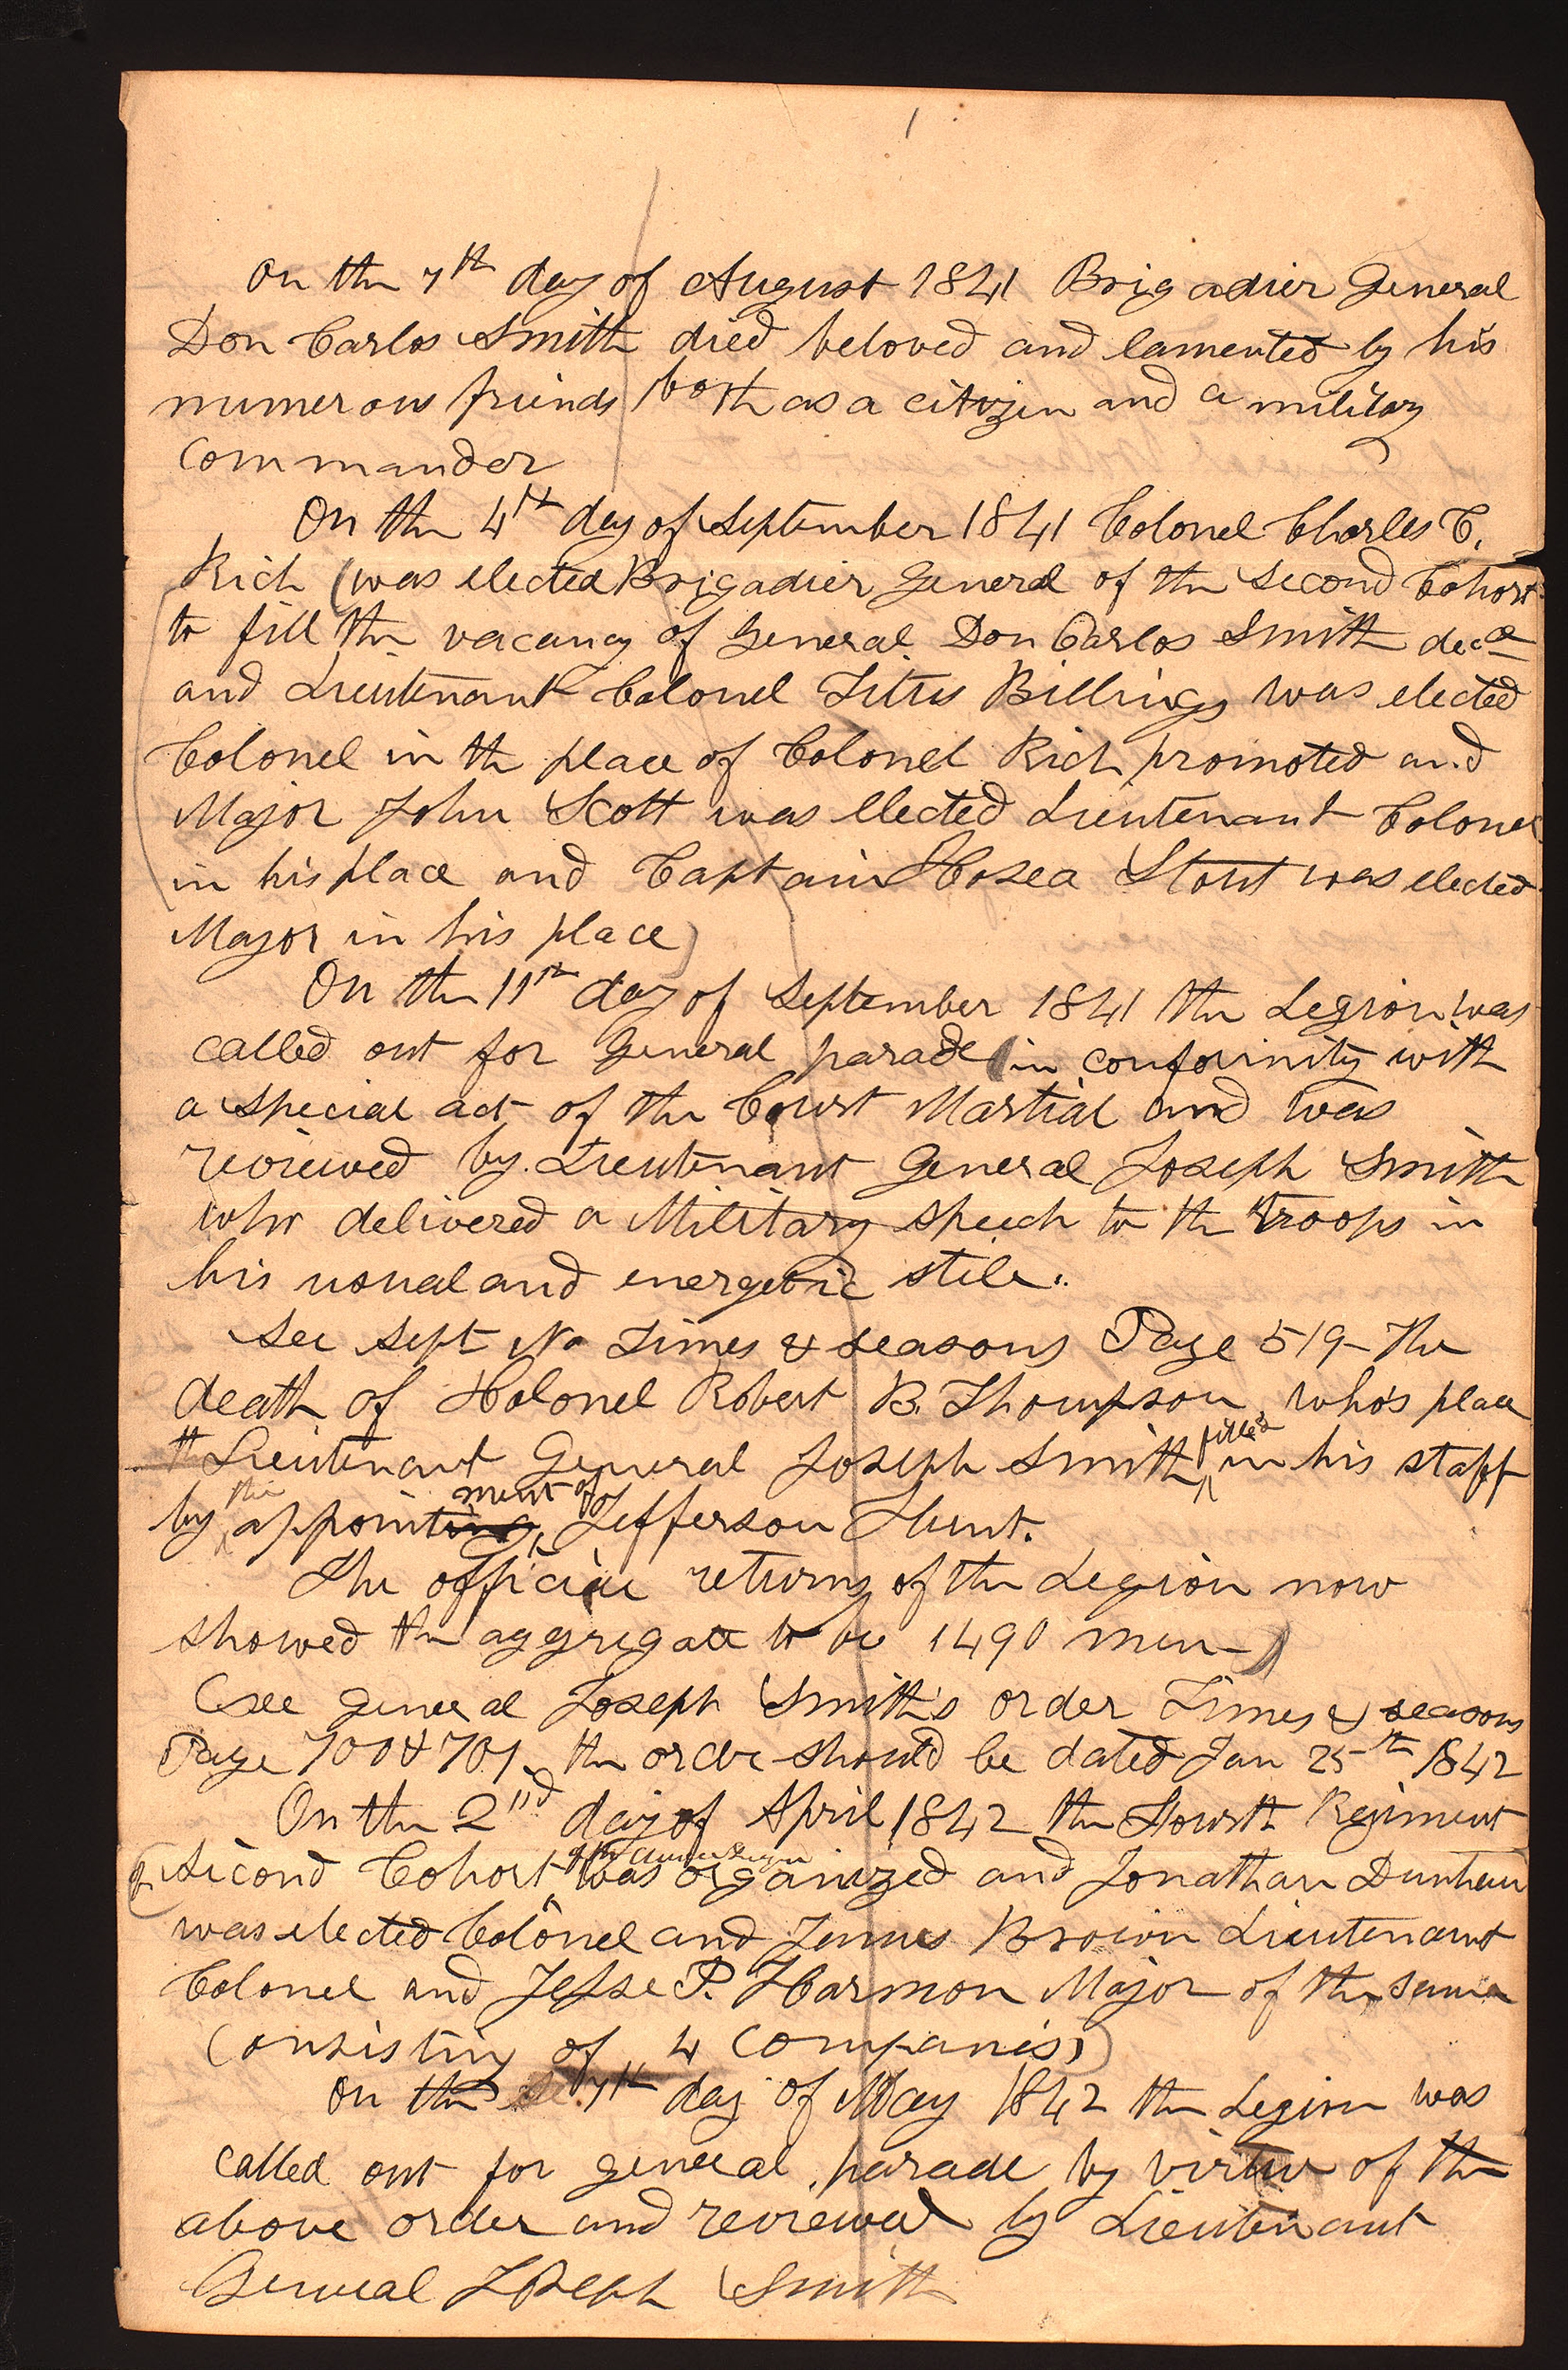 1
On the 7th day of August 1841 Brigadier General
Don Carlos Smith died beloved and lamented by his
numerous friends both as a citizen and a military
commander
On the 4th day of September 1841 Colonel Charles C.
Rich (was elected Brigadier General of the Second Cohort
to fill the vacancy of General Don Carlos Smith decd
and Lieutenant Colonel Titus Billings was elected
Colonel in the place of Colonel Rich promoted and
Major John Scott was Elected Lieutenant Colonel
in his place and Captain Hosea Stout was elected
Major in his place)
On the 11th day of September 1841 the Legion was
called out for General parade (in conformity with
a special act of the Court Martial and was
reviewed by Lieutenant General Joseph Smith
who delivered a Military speech to the troops in
his usual and energetic stile.
See Sept No Times & Seasons Page 519 - The
death of Colonel Robert B. Thompson, who's place
Lieutenant General Joseph Smith filled in his staff
by the appointing ment of Jefferson Hunt.
The official returns of the Legion now
showed the aggregate to be 1490 men-)
(see general Joseph Smith's order Times & seasons
Page 700 & 701. the order should be dated Jan 25th 1842
On the 2nd day of April 1842 the Fourth Regiment
(of Second Cohort was organized and Jonathan Dunham
was elected Colonel and James Brown Lieutenant
Colonel and Jesse P. Harmon Major of the same
Consisting of 4 Companies)
On the 7th day of May 1842 the Legion was
called out for general parade by virtue of the
above order and reviewed by Lieutenant
General Joseph Smith